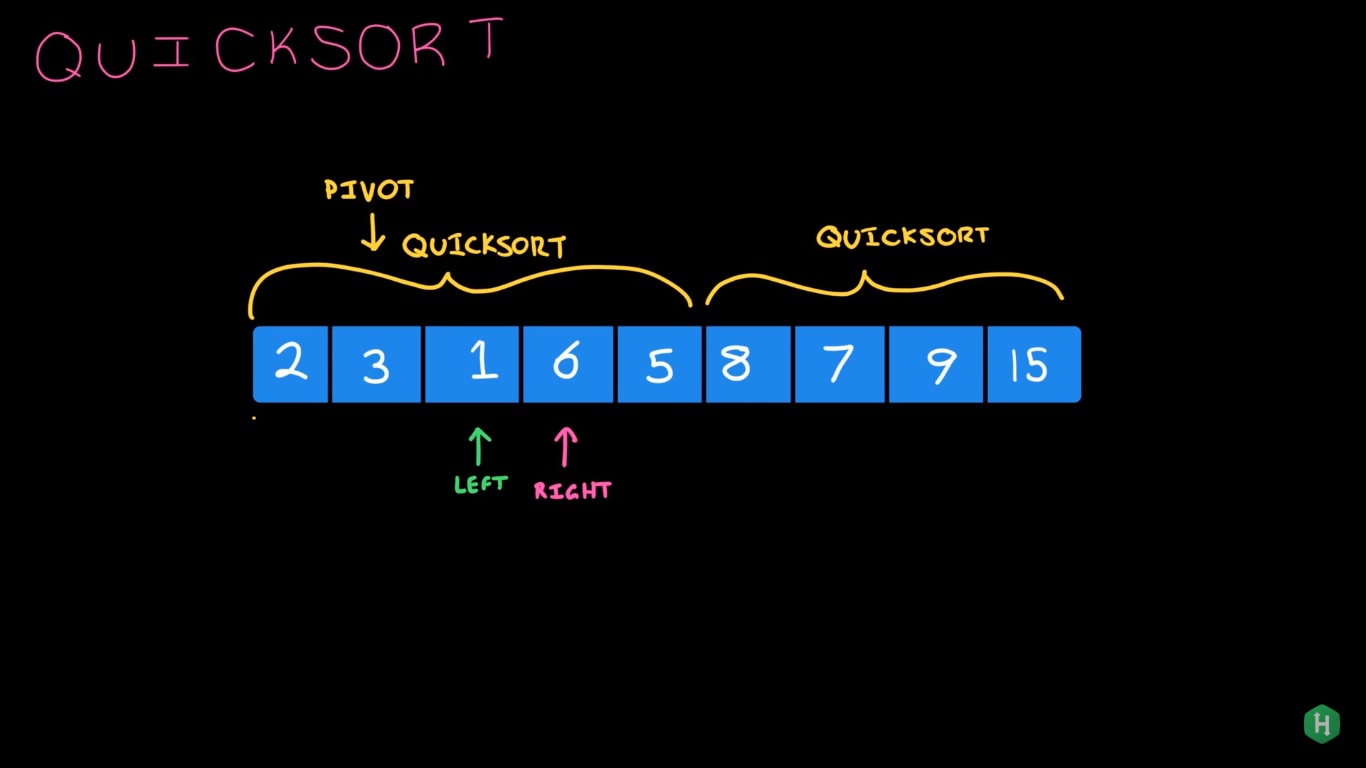 QUICKSORT
PIVOT
QUICKSORT
QUICKSORT
2 3 1 6 5 8 7 9 15
LEFT
RIGHT
H